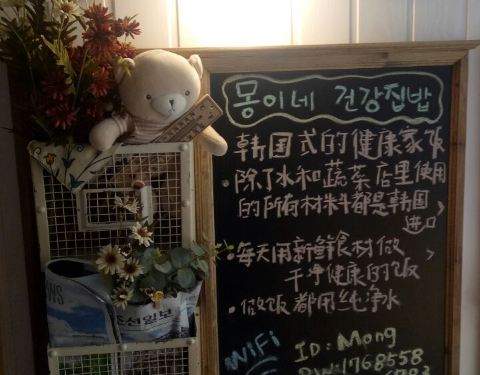 몽이네 건강집밥
韩国式的健康家饭
·除了水和蔬菜店里使用
的所有材料都是韩国
进口
·每天用新鲜食材做
干净健康的饭
·做饭都用纯净水
WiFi
ID: Mong
PW: 1768558
조선일보